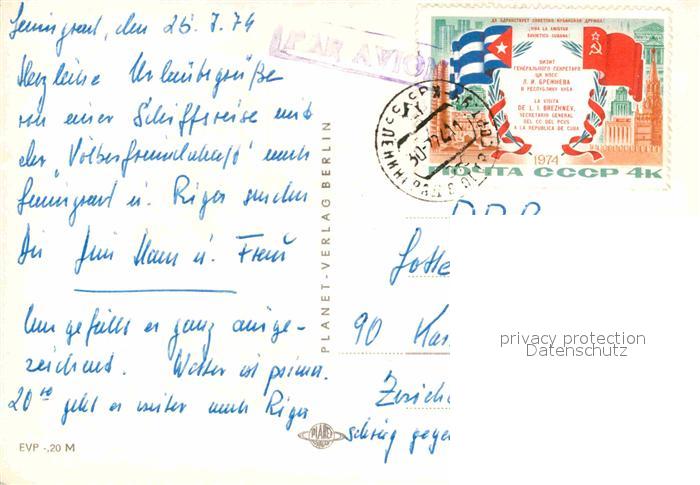 Leningrad, den 26.7.74
Herzliche Urlaubsgrüße
von einer Schiffsreise mit
der „Völkerfreundschaft" nach
Leningrad u. Riga senden
Dir Jim Mann u. Frau
Uns gefällt es ganz ausge-
zeichnet. Wetter ist prima.
20°° geht es weiter nach Riga
EVP -,20 M
PLANET-VERLAG BERLIN
PLANET
PAR AVION
ДА ЗДРАВСТВУЕТ СОВЕТСКО-КУБИНСКАЯ ДРУЖБА!
¡VIVA LA AMISTAD
SOVIETICO-CUBANA!
ВИЗИТ
ГЕНЕРАЛЬНОГО СЕКРЕТАРЯ
ЦК КПСС
Л. И. БРЕЖНЕВА
В РЕСПУБЛИКУ КУБА
LA VISITA
DE L. I. BREZHNEV,
SECRETARIO GENERAL
DEL CC DEL PCUS
A LA REPUBLICA DE CUBA
1974
ПОЧТА СССР 4К
DDR
90 Kar
privacy protection
Datenschutz
schräg gege